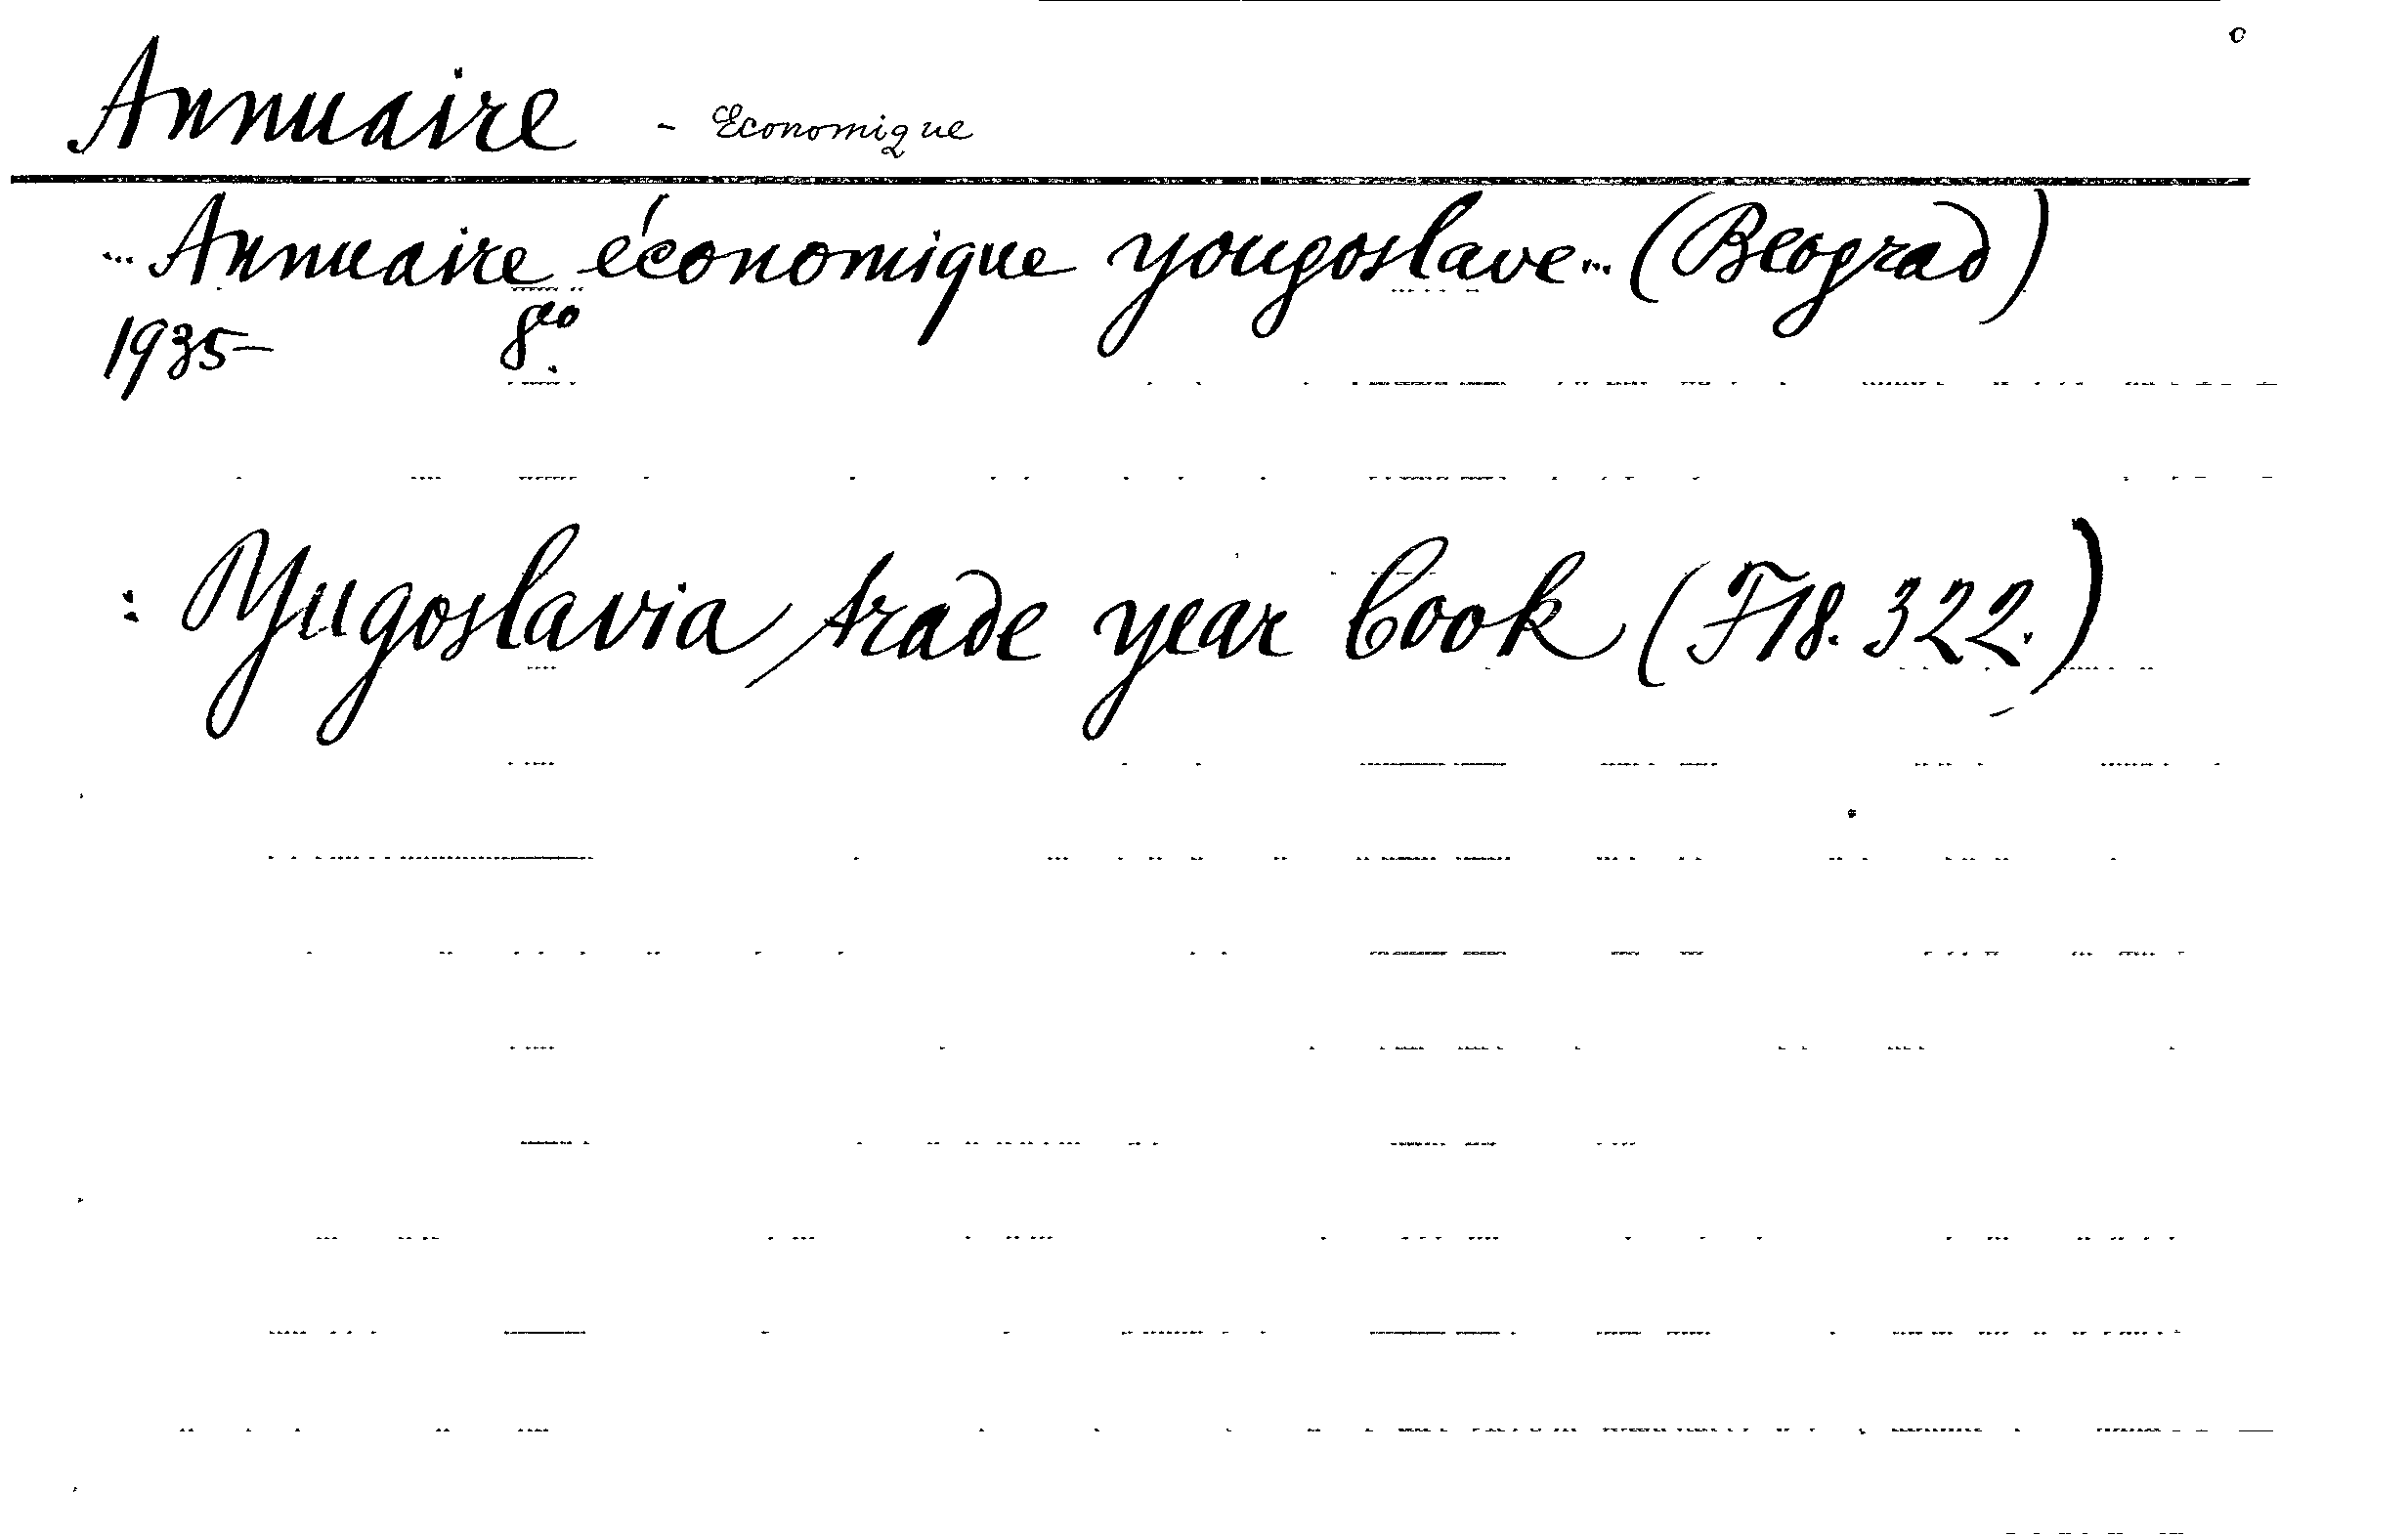 Annuaire - Economique
... Annuaire économique yougoslave... (Beograd)
1935- 8vo.
: Yugoslavia trade year book (F18.322.)